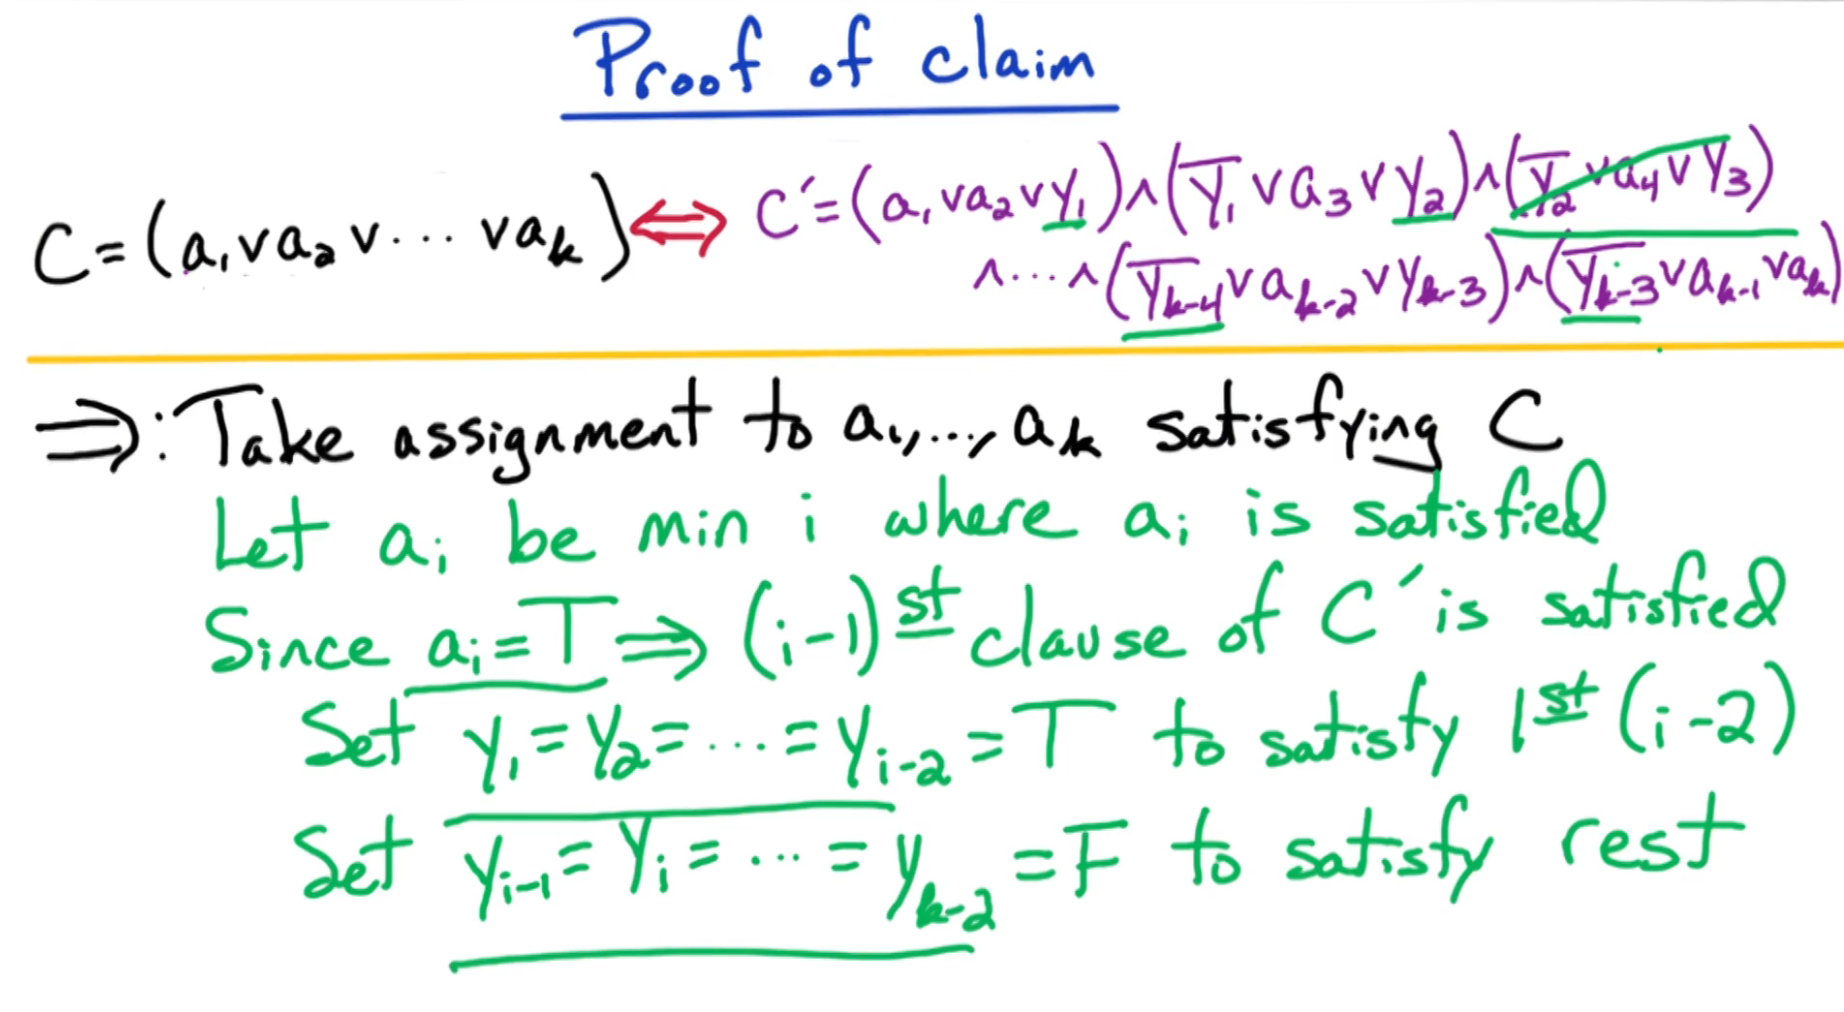 Proof of claim
C = (a₁ ∨ a₂ ∨ ··· ∨ aₖ) ⇔ C′ = (a₁ ∨ a₂ ∨ y₁) ∧ (y̅₁ ∨ a₃ ∨ y₂) ∧ (y̅₂ ∨ a₄ ∨ y₃)
∧ ··· ∧ (y̅ₖ₋₄ ∨ aₖ₋₂ ∨ yₖ₋₃) ∧ (y̅ₖ₋₃ ∨ aₖ₋₁ ∨ aₖ)
⇒: Take assignment to a₁, ..., aₖ satisfying C
Let aᵢ be min i where aᵢ is satisfied
Since aᵢ = T ⇒ (i-1)st clause of C′ is satisfied
Set y₁ = y₂ = ··· = yᵢ₋₂ = T to satisfy 1st (i-2)
Set yᵢ₋₁ = yᵢ = ··· = yₖ₋₂ = F to satisfy rest